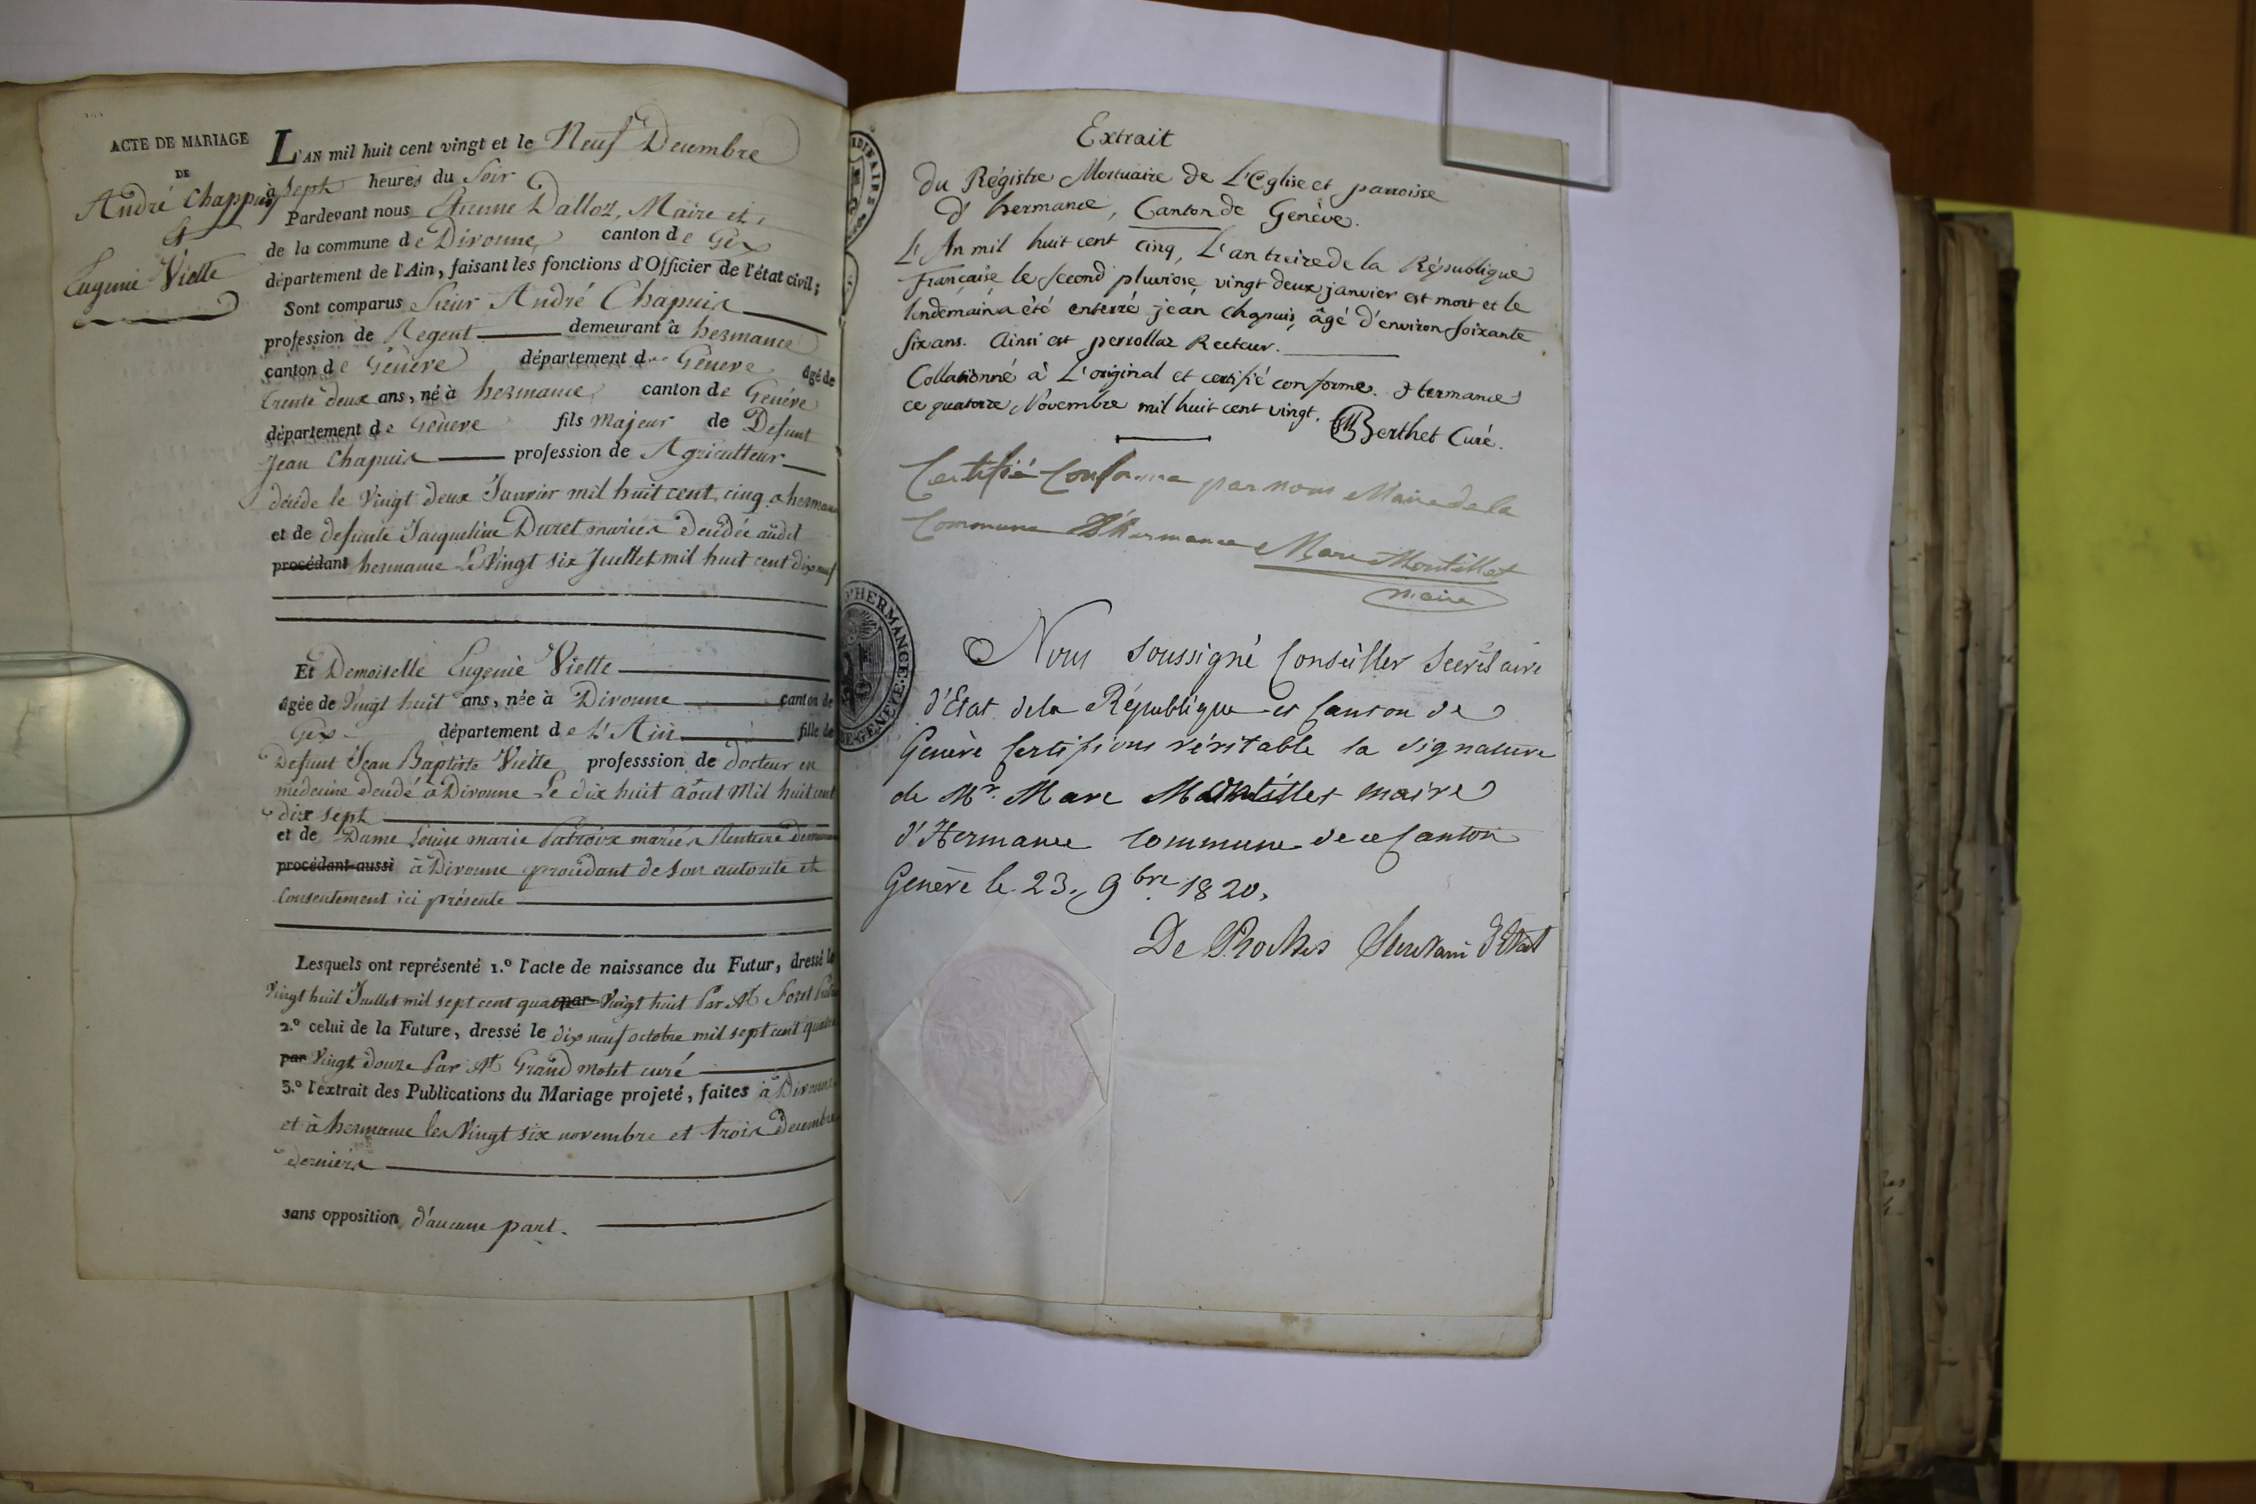 ACTE DE MARIAGE
DE
André Chappuis
et
Eugenie Vielle
L'AN mil huit cent vingt et le Neuf Decembre
à sept heures du Soir
Pardevant nous Etienne Dalloz, Maire et
de la commune de Divonne, canton de Gex
département de l'Ain, faisant les fonctions d'Officier de l'état civil;
Sont comparus Sieur André Chapuis
profession de Regent demeurant à hermance
canton de Genève département de Geneve âgé de
trente deux ans, né à hermance, canton de Genève
département de Geneve fils majeur de Defunt
Jean Chapuis profession de Agriculteur
décédé le Vingt deux Janvier mil huit cent cinq a hermance
et de defunte Jacqueline Duret mariés décédée audit
procédant hermance Le Vingt six Juillet mil huit cent dix neuf
Et Demoiselle Eugenie Vielle
âgée de Vingt huit ans, née à Divonne canton de
Gex département de L'Ain fille de
Defunt Jean Baptiste Vielle professsion de docteur en
medecine décédé à Divonne Le dix huit Août Mil huit cent
dix sept
et de Dame Louise marie mariés Rentiere
procédant aussi à Divonne procédant de son autorité et
Consentement ici présente
Lesquels ont représenté 1.º l'acte de naissance du Futur, dressé le
Vingt huit Juillet mil sept cent quatre par Vingt huit Par Mr
2.º celui de la Future, dressé le dix neuf octobre mil sept cent quatre
par Vingt douze Par Mr Grand motet curé
3.º l'extrait des Publications du Mariage projeté, faites à Divonne
et à hermance les Vingt six novembre et trois decembre
derniers
sans opposition d'aucune part.
Extrait
du Régistre Mortuaire de L'Eglise et parroisse
d'hermance, Canton de Genève.
L'An mil huit cent cinq, L'an treize de la République
Française le second pluviose, vingt deux janvier est mort et le
lendemain a été enterré jean chapuis, âgé d'environ soixante
six ans. Ainsi est perrollaz Recteur.
Collationné à L'original et certifié conforme. Hermance
ce quatorze Novembre mil huit cent vingt. Berthet Curé.
Certifié Conforme par nous Maire de la
Commune D'hermance Marc Montillet
maire
D'HERMANCE
Nous soussigné Conseiller Secrétaire
d'Etat de la République et Canton de
Genève Certifions véritable la signature
de Mr. Marc Montillet maire
d'Hermance commune de ce Canton
Genève le 23. 9bre 1820.
De Roches Secretaire d'Etat